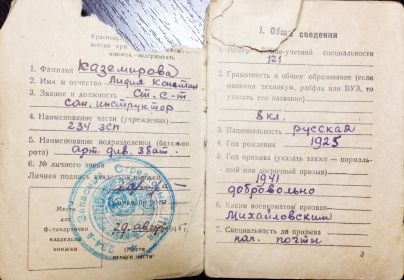 Красноар
всегда при
книжек—задерживать
1. Фамилия Каземирова
2. Имя и отчество Лидия Констан
3. Звание и должность Ст. с-т
сан. инструктор
4. Наименование части (учреждения)
234 зсп
5. Наименование подразделения (батальон,
рота) арт. див. 3 бат.
6. № личного знака
Личная подпись
Место
для
ф.-токарточки
владельца
книжки
29 август 194
(Место
печати части)
1. Общие сведения
1. Номер учетной специальности
121
2. Грамотность и общее образование (если
окончил техникум, рабфак или ВУЗ, то
указать его название)
8 кл.
3. Национальность русская
4. Год рождения 1925
5. Год призыва (указать также — нормаль-
ный или досрочный призыв)
1941
добровольно
6. Каким военкоматом призван
Михайловским
7. Специальность до призыва
нач. почты
3